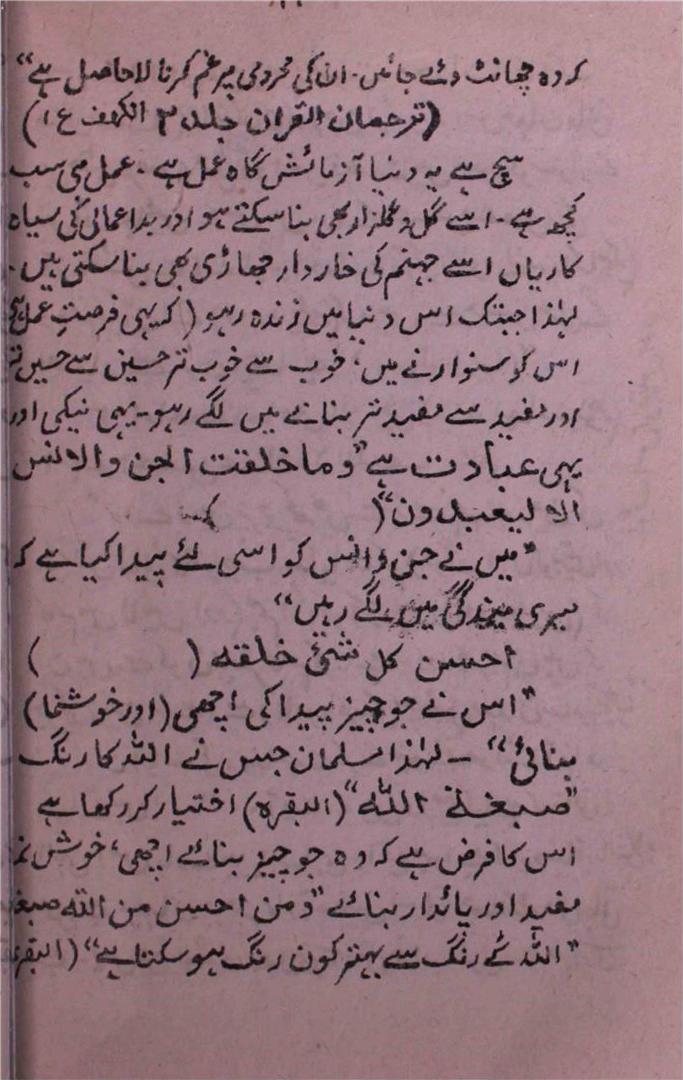 کہ وہ چھانٹ دئے جائیں۔ ان کی محرومی پر غم کرنا لاحاصل ہے“
(ترجمان القرآن جلد ۳ الکہف ع ۱)
سچ ہے یہ دنیا آزمائش گاہ عمل ہے۔ عمل ہی سب
کچھ ہے۔ اسے گل و گلزار بھی بنا سکتے ہو اور بداعمالی کی سیاہ
کاریاں اسے جہنم کی خاردار جھاڑی بھی بنا سکتی ہیں۔
لہٰذا جبتک اس دنیا میں زندہ رہو (کہ یہی فرصتِ عمل ہے
اس کو سنوارنے میں، خوب سے خوب تر حسین سے حسیں تر
اور مفید سے مفید تر بنانے میں لگے رہو۔ یہی نیکی اور
یہی عبادت ہے ”وما خلقت الجن والانس
الا لیعبدون“ (
”میں نے جن و انس کو اسی لئے پیدا کیا ہے کہ
میری بندگی میں لگے رہیں“
احسن کل شئ خلقه ( )
”اس نے جو چیز پیدا کی اچھی (اور خوشنما)
بنائی“ ۔ لہٰذا مسلمان جس نے اللہ کا رنگ
”صبغة اللّٰه“ (البقرہ) اختیار کر رکھا ہے
اس کا فرض ہے کہ وہ جو چیز بنائے اچھی، خوش نما
مفید اور پائدار بنائے ”ومن احسن من اللّٰه صبغة
”اللہ کے رنگ سے بہتر کون رنگ ہو سکتا ہے“ (البقرہ